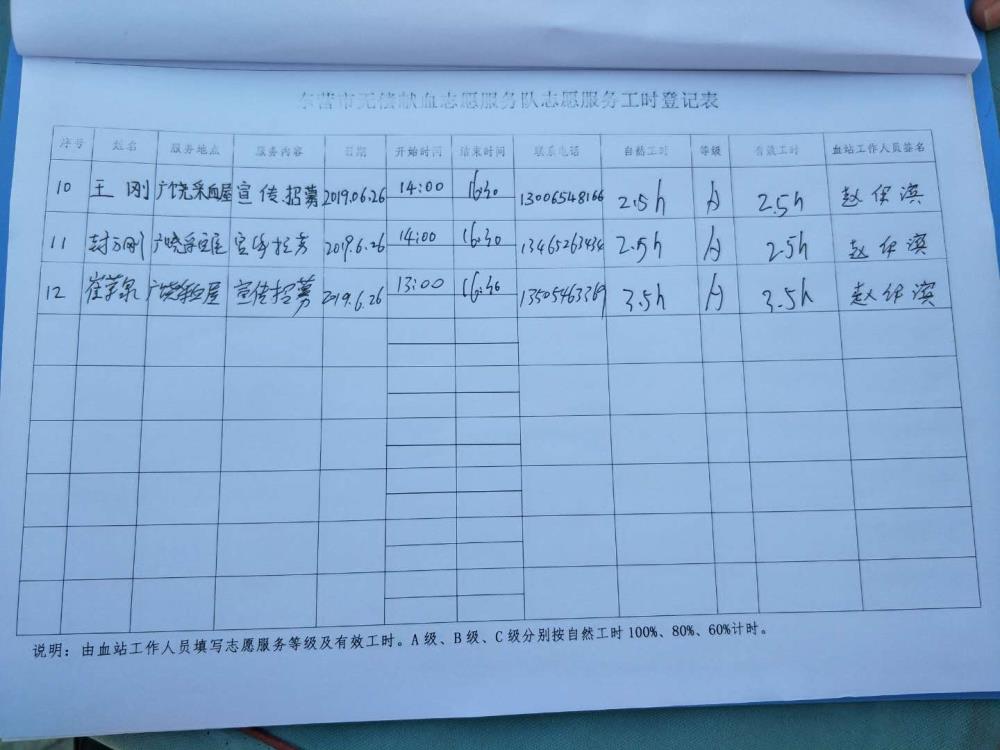 东营市无偿献血志愿服务队志愿服务工时登记表
序号 姓名 服务地点 服务内容 日期 开始时间 结束时间 联系电话 自然工时 等级 有效工时 血站工作人员签名
10 王刚 广饶采血屋 宣传招募 2019.06.26 14:00 16:30 13006548166 2.5h A 2.5h 赵保滨
11 广饶采血屋 宣传招募 2019.6.26 14:00 16:30 13465263434 2.5h A 2.5h 赵保滨
12 崔苹泉 广饶采血屋 宣传招募 2019.6.26 13:00 16:30 13505463369 3.5h A 3.5h 赵保滨
说明：由血站工作人员填写志愿服务等级及有效工时。A级、B级、C级分别按自然工时100%、80%、60%计时。